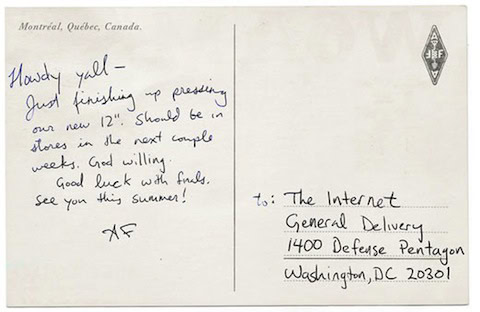 Montréal, Québec, Canada.
Howdy yall –
Just finishing up pressing
our new 12". Should be in
stores in the next couple
weeks. God willing.
Good luck with finals.
See you this summer!
AF
to: The Internet
General Delivery
1400 Defense Pentagon
Washington, DC 20301